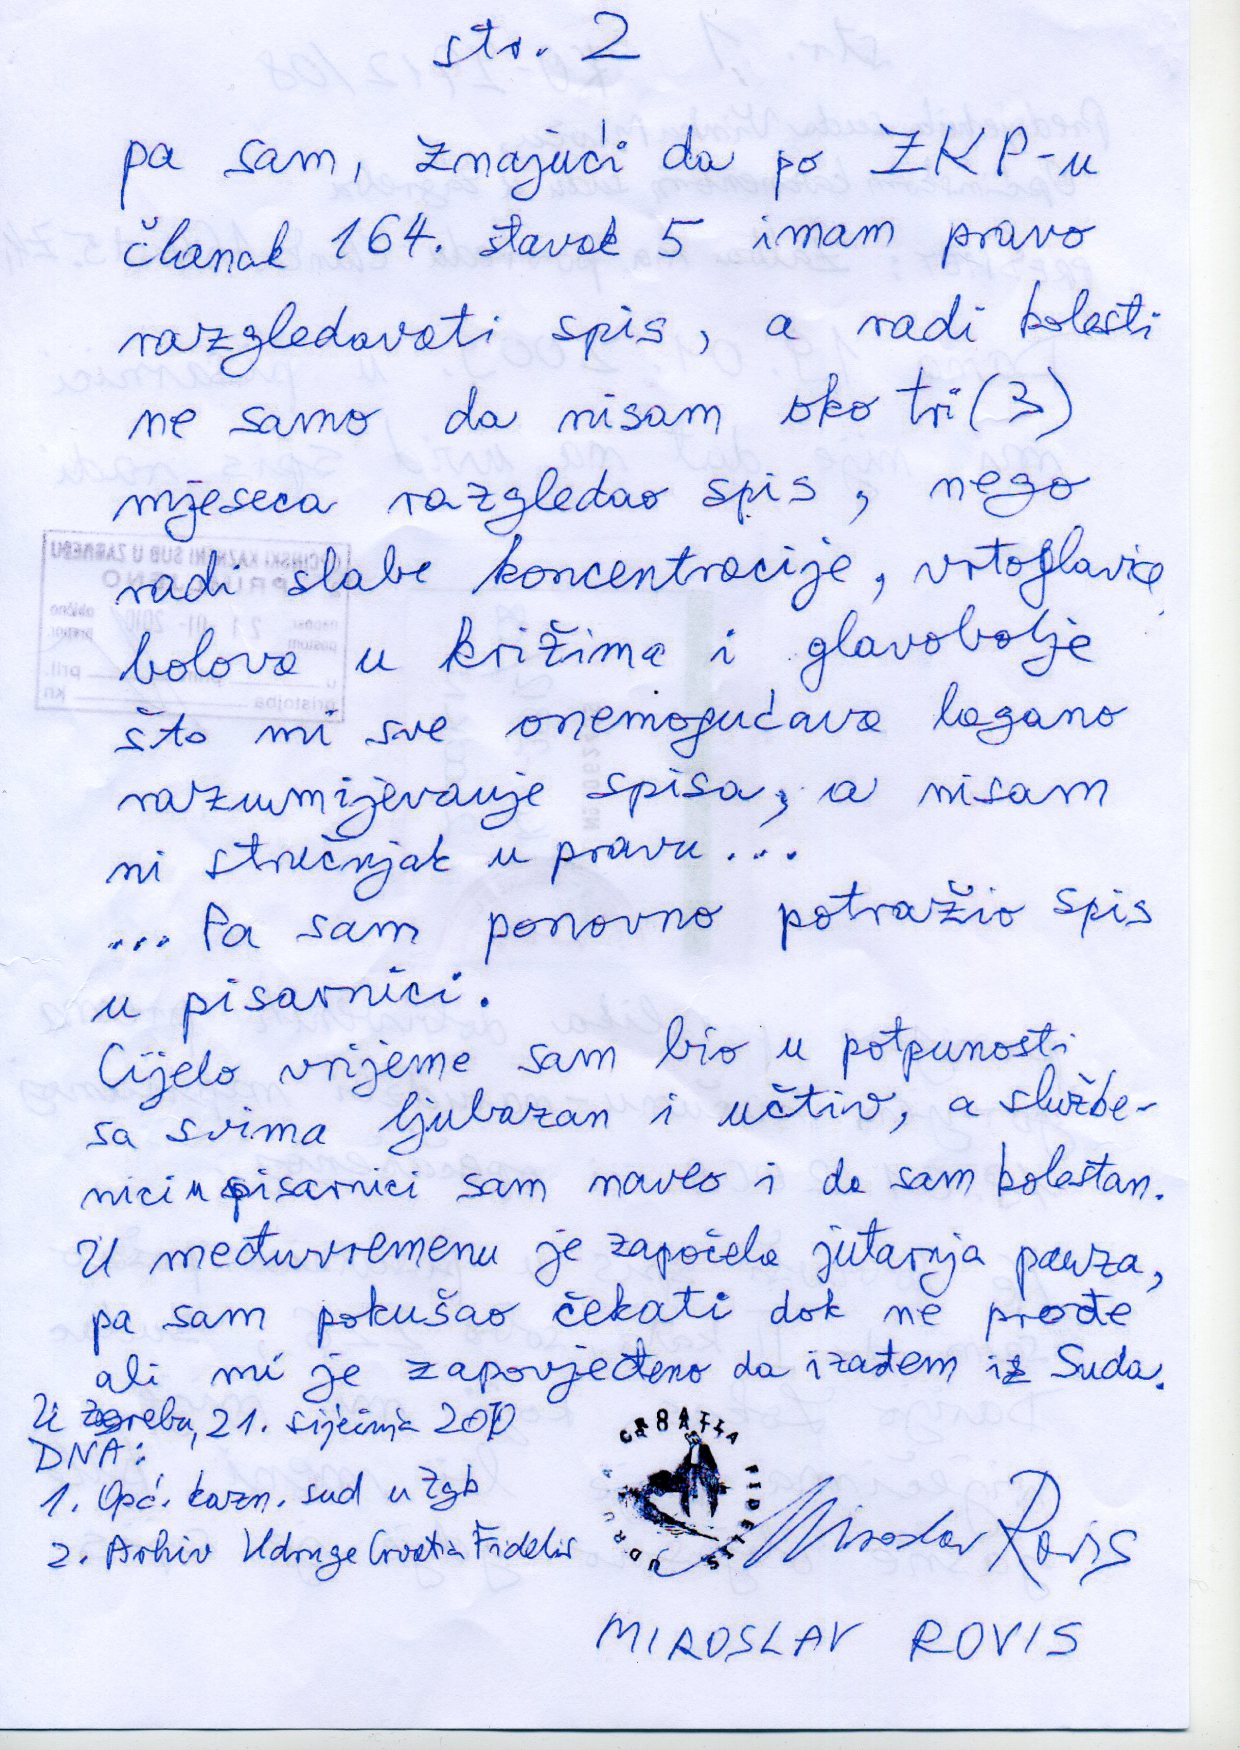 str. 2
pa sam, znajući da po ZKP-u
članak 164. stavak 5 imam pravo
razgledavati spis, a radi bolesti
ne samo da nisam oko tri (3)
mjeseca razgledao spis, nego
radi slabe koncentracije, vrtoglavice
bolova u križima i glavobolje
što mi sve onemogućava lagano
razumijevanje spisa, a nisam
ni stručnjak u pravu...
... Pa sam ponovno potražio spis
u pisarnici.
Cijelo vrijeme sam bio u potpunosti
sa svima ljubazan i učtiv, a službe-
nici u pisarnici sam naveo i da sam bolestan.
U međuvremenu je započela jutarnja pauza,
pa sam pokušao čekati dok ne prođe
ali mi je zapovjeđeno da izađem iz Suda.
U Zagrebu, 21. siječnja 2010
DNA:
1. Opć. kazn. sud u Zgb
2. Arhiv Udruge Croatia Fidelis
CROATIA FIDELIS UDRUGA
Miroslav Rovis
MIROSLAV ROVIS